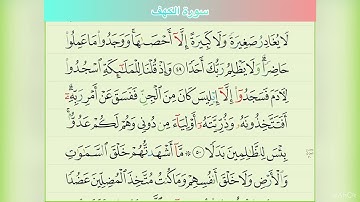 سورة الكهف
لَا يُغَادِرُ صَغِيرَةً وَلَا كَبِيرَةً إِلَّآ أَحْصَىٰهَا ۚ وَوَجَدُوا۟ مَا عَمِلُوا۟
حَاضِرًا ۗ وَلَا يَظْلِمُ رَبُّكَ أَحَدًا ٤٩ وَإِذْ قُلْنَا لِلْمَلَـٰٓئِكَةِ ٱسْجُدُوا۟
لِـَٔادَمَ فَسَجَدُوٓا۟ إِلَّآ إِبْلِيسَ كَانَ مِنَ ٱلْجِنِّ فَفَسَقَ عَنْ أَمْرِ رَبِّهِۦٓ ۗ
أَفَتَتَّخِذُونَهُۥ وَذُرِّيَّتَهُۥٓ أَوْلِيَآءَ مِن دُونِى وَهُمْ لَكُمْ عَدُوٌّۢ ۚ
بِئْسَ لِلظَّـٰلِمِينَ بَدَلًا ٥٠ ۞ مَّآ أَشْهَدتُّهُمْ خَلْقَ ٱلسَّمَـٰوَٰتِ
وَٱلْأَرْضِ وَلَا خَلْقَ أَنفُسِهِمْ وَمَا كُنتُ مُتَّخِذَ ٱلْمُضِلِّينَ عَضُدًا